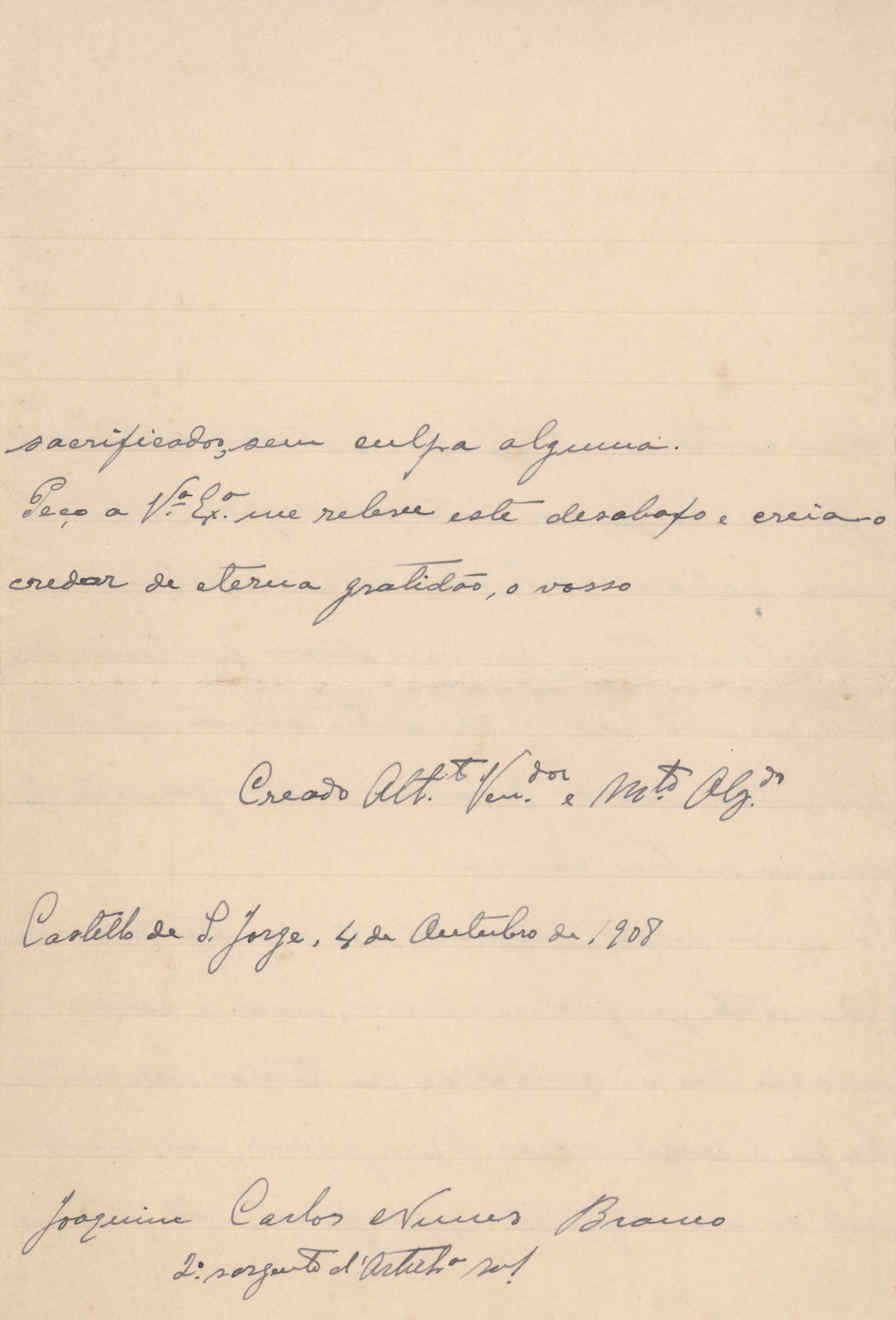 sacrificados, sem culpa alguma.
Peço a V.ª Ex.ª me releve este desabafo e creia-o
credor de eterna gratidão, o vosso
Creado Att.to Ven.dor e M.to Obg.do
Castello de S. Jorge, 4 de Outubro de 1908
Joaquim Carlos Nunes Branco
2.º sargento d'Artilh.a